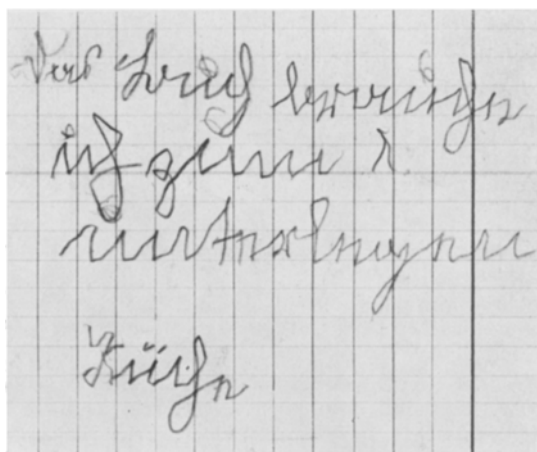 Das Buch brauche
ich zum
unterlegen
Küche